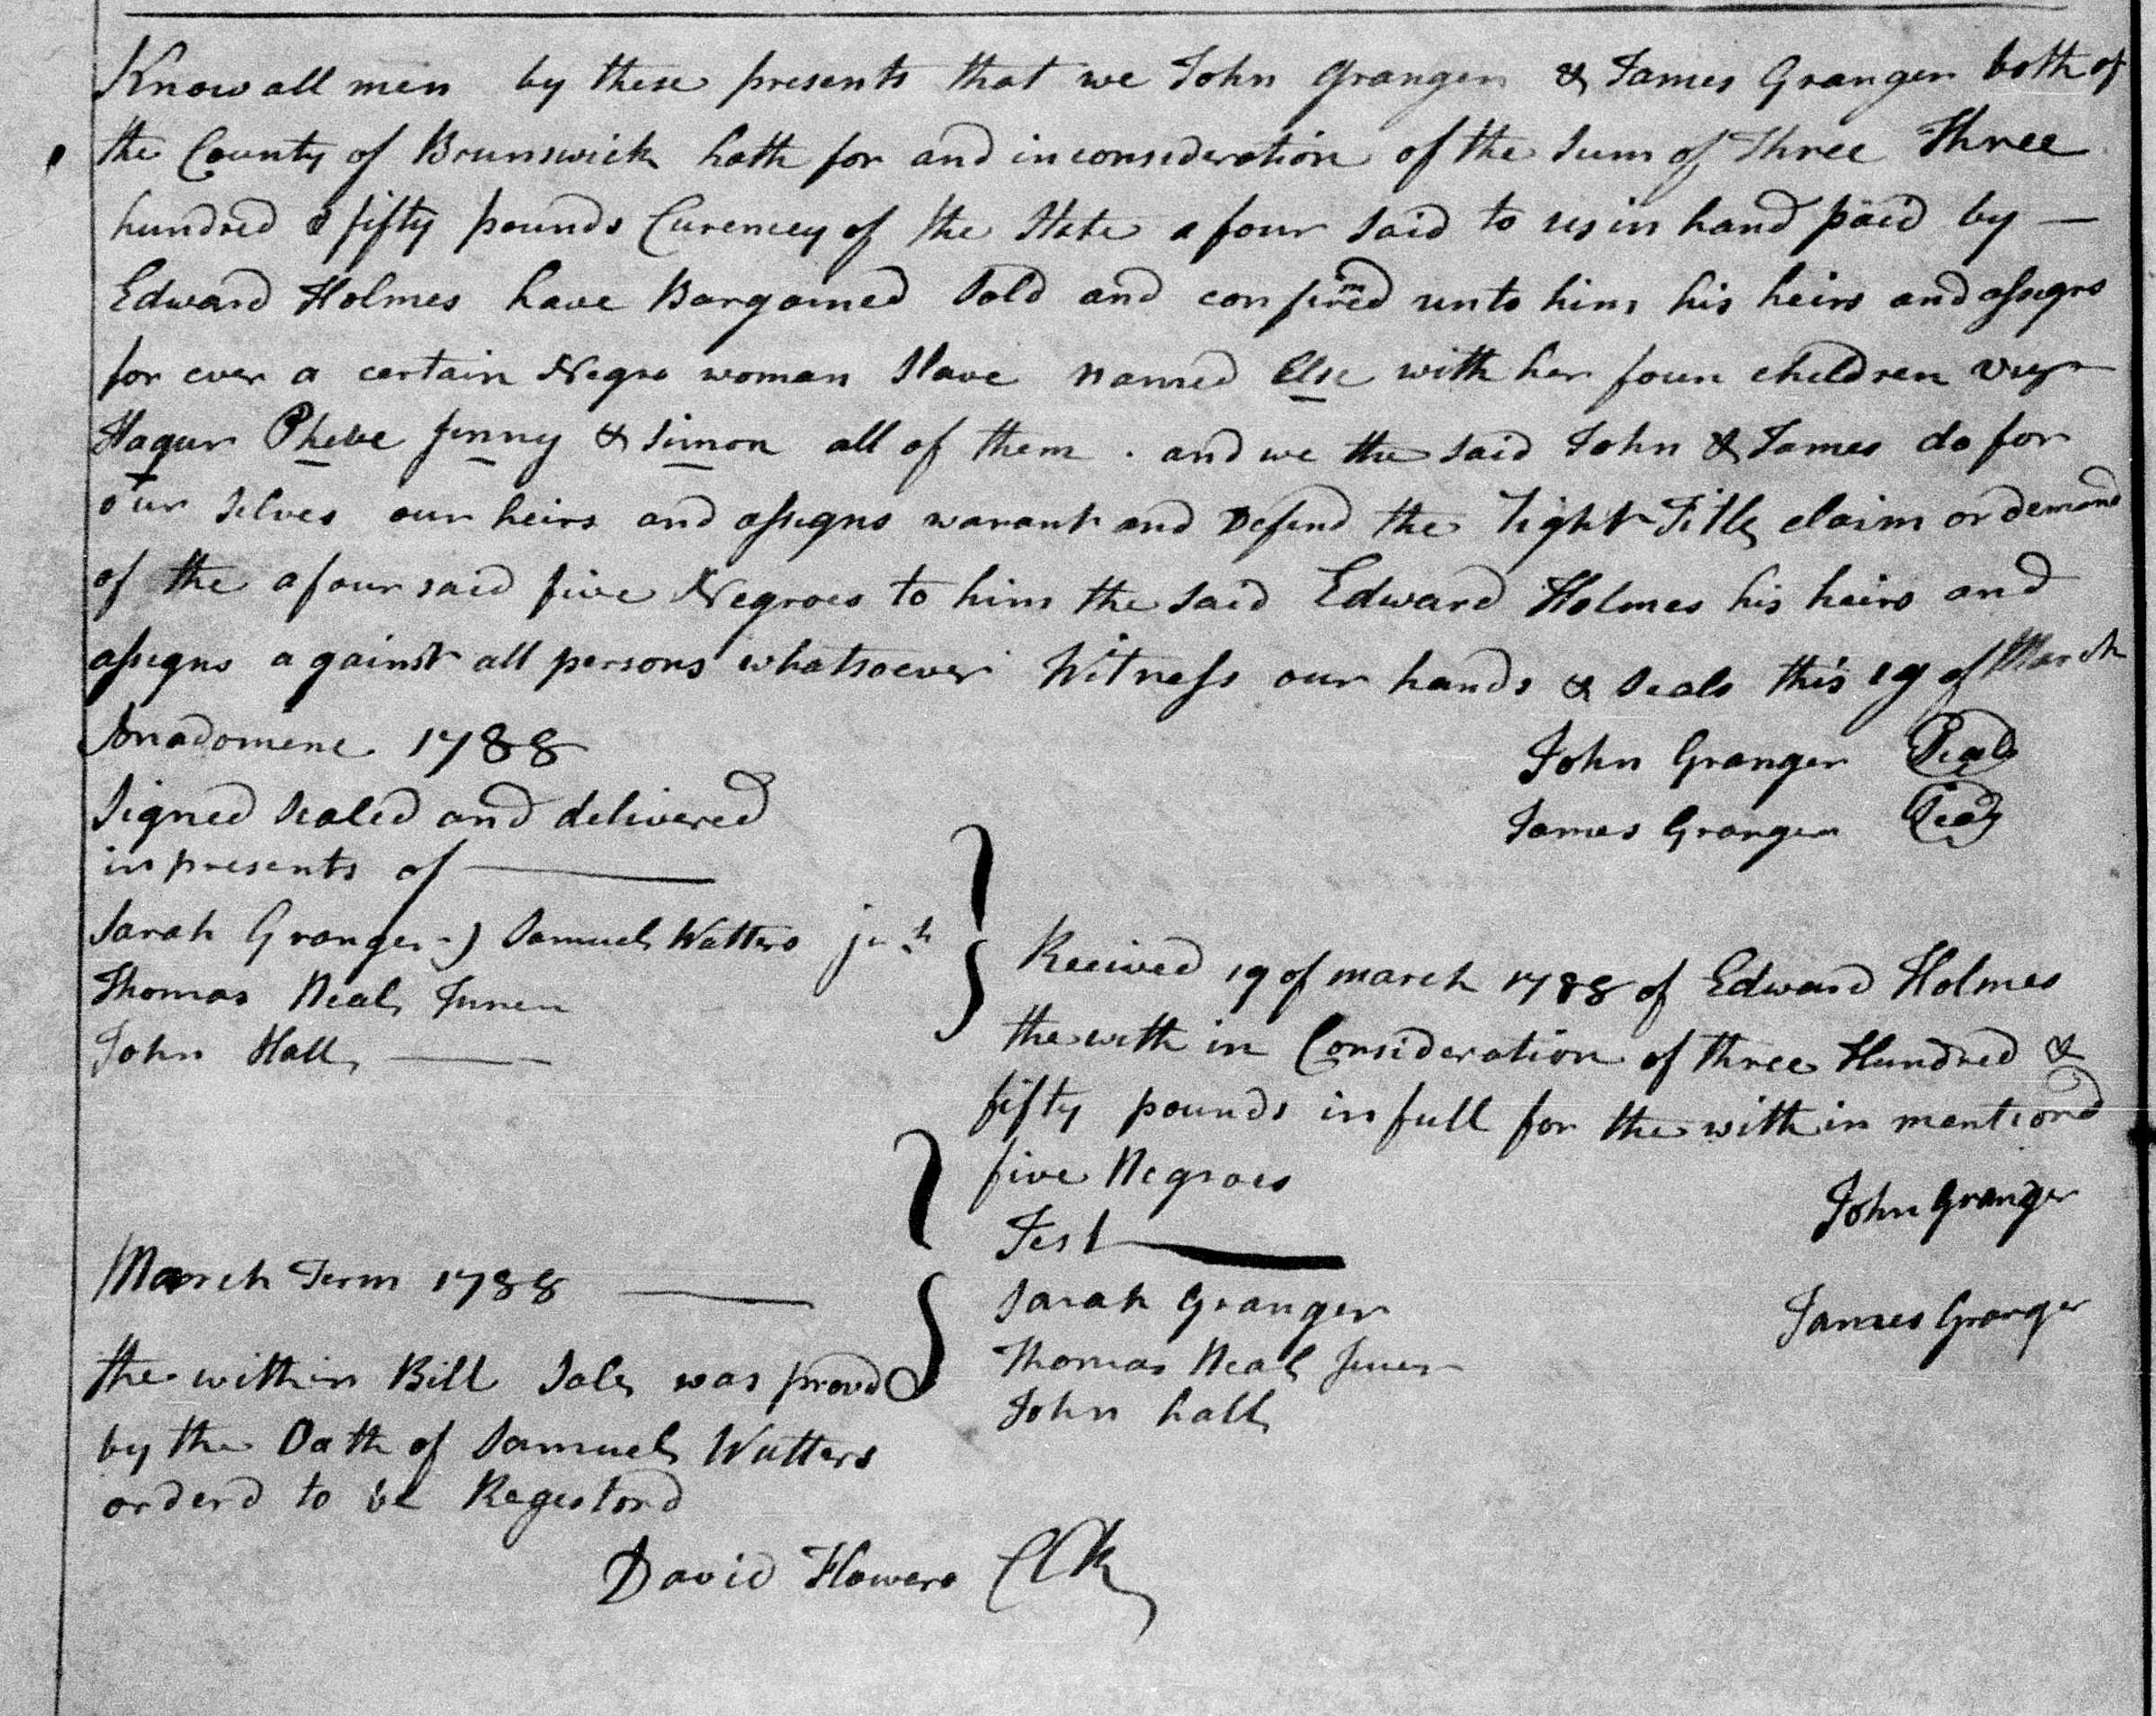 Know all men by these presents that we John Granger & James Granger both of
the County of Brunswick hath for and in consideration of the Sum of Three Three
hundred & fifty pounds Curencey of the State a four said to us in hand paid by —
Edward Holmes have Bargained Sold and confirmed unto him his heirs and assigns
for ever a certain Negro woman Slave named Else with her four children
Hagur Phebe Jenny & Simon all of them . and we the said John & James do for
our selves our heirs and assigns warant and Defend the right Title claim or demand
of the a four said five Negroes to him the said Edward Holmes his heirs and
assigns against all persons whatsoever Witness our hands & Seals this 19 of March
1788
John Granger Seal
James Granger Seal
Signed Sealed and delivered
in presents of
Sarah Granger Samuel Watters
Thomas Neal Juner
John Hall
Received 19 of march 1788 of Edward Holmes
the with in Consideration of three Hundred &
fifty pounds in full for the with in mentiond
five Negroes
John Granger
Test
James Granger
Sarah Granger
Thomas Neal Juner
John hall
March Term 1788
the within Bill Sale was provd
by the Oath of Samuel Watters
orderd to be Regestord
David Flowers CCk